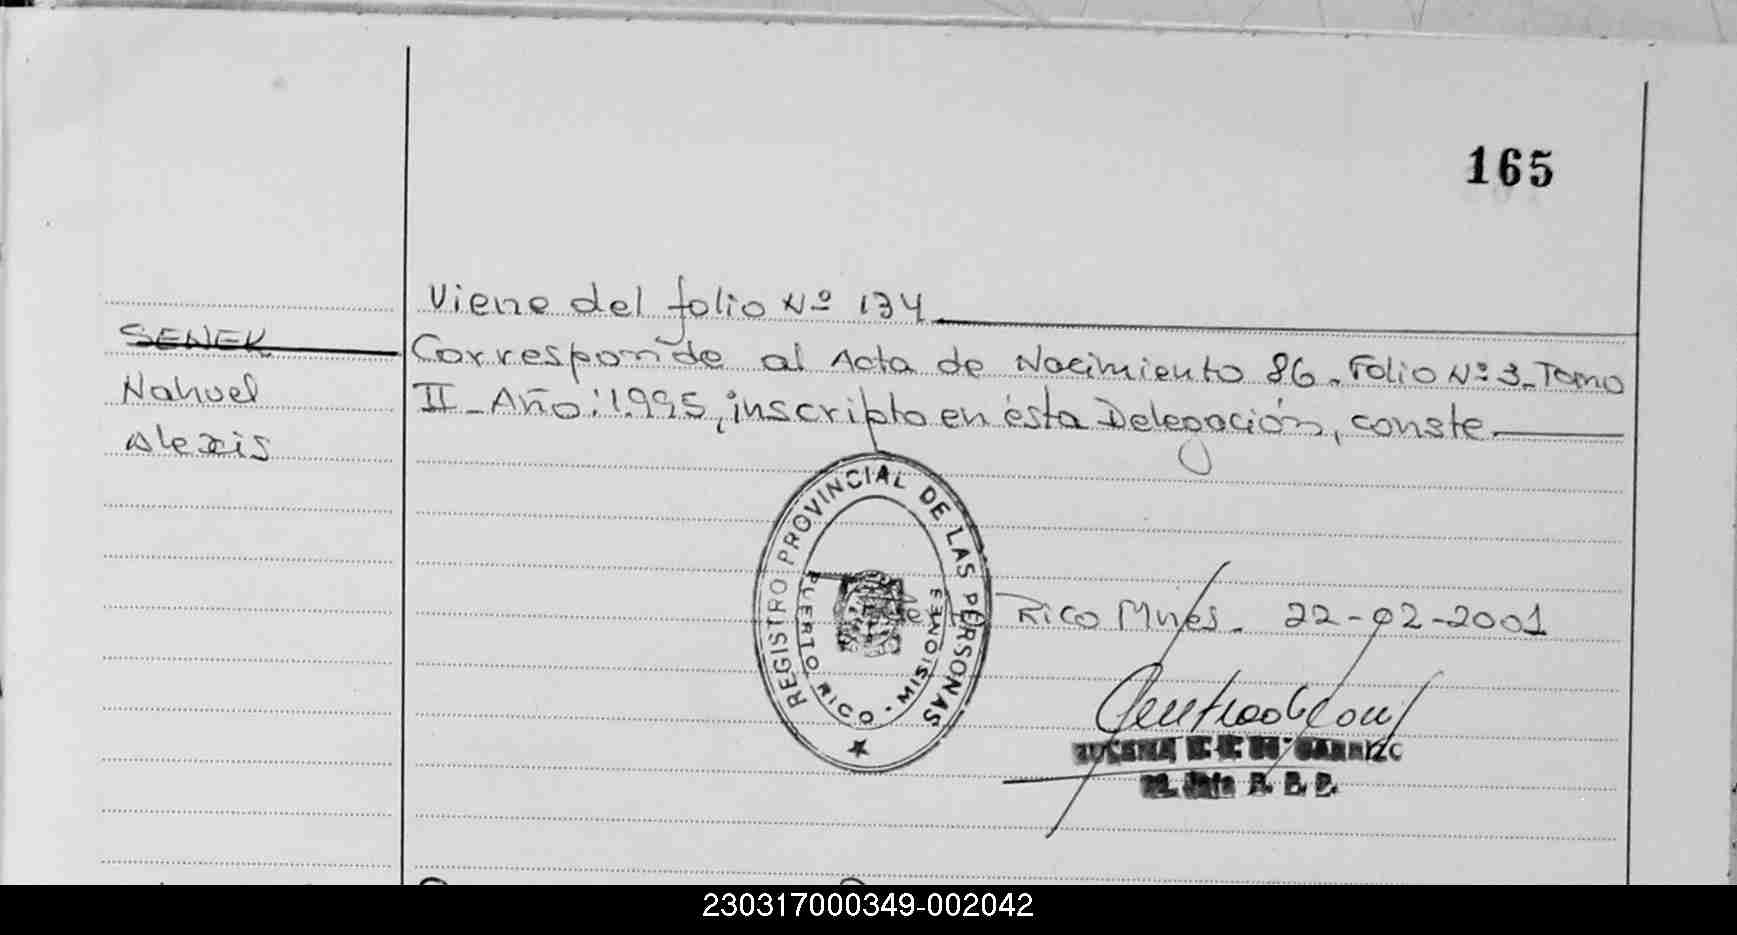 165
Viene del folio Nº 134
SENEK
Corresponde al Acta de Nacimiento 86. Folio Nº 3. Tomo
Nahuel
II - Año: 1995, inscripto en ésta Delegación, conste.
Alexis
REGISTRO PROVINCIAL DE LAS PERSONAS
PUERTO RICO - MISIONES
Rico Mnes. 22-02-2001
R. P. P.
230317000349-002042